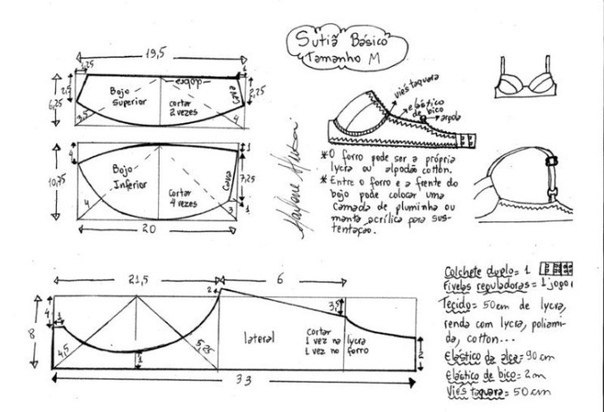 Sutiã Básico
Tamanho M
19,5
1,25
2,5
6,25
Bojo
Superior
dobra
cortar
2 vezes
cava
2,75
3,5
4
1
10,75
4
Bojo
Inferior
cortar
4 vezes
Cava
7,25
1
4
3
1
20
viés taquara
elástico
de bico
argola
* O forro pode ser a própria
lycra ou algodão cotton.
* Entre o forro e a frente do
bojo pode colocar uma
camada de pluminha ou
manta acrílica para sus-
tentação.
Marlene Mukai
21,5
6
2
4
1
8
4,5
1
5,25
lateral
Cortar
1 vez na lycra
1 vez no forro
3,5
2
33
Colchete duplo = 1
Fivelas reguladoras = 1 jogo
Tecido = 50cm de lycra,
renda com lycra, poliami-
da, cotton...
Elástico da alça = 90 cm
Elástico de bico = 2m
Viés taquara = 50 cm